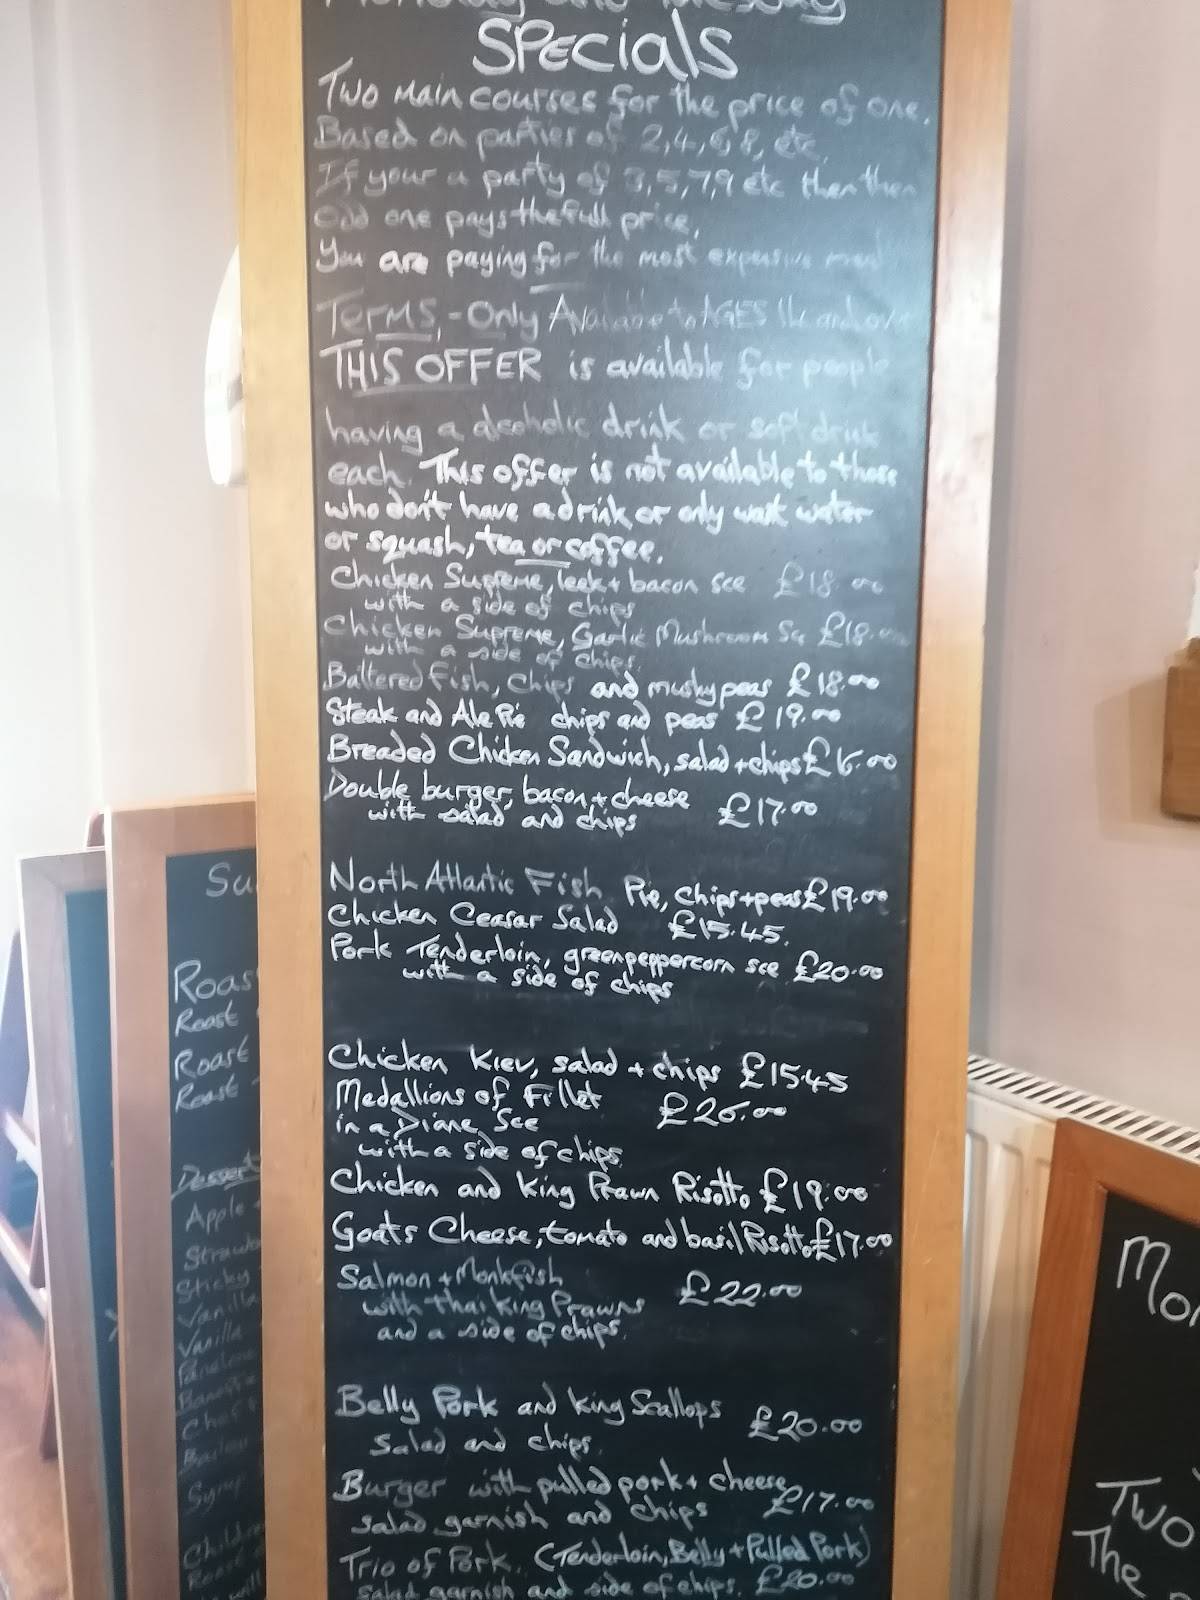 Monday and Tuesday
SPecials
Two main courses for the price of one.
Based on parties of 2,4,6,8, etc.
If your a party of 3,5,7,9 etc then then
odd one pays the full price.
You are paying for the most expensive meal
Terms, - Only Available to AGES and over
THIS OFFER is available for people
having a alcoholic drink or soft drink
each. This offer is not available to those
who don't have a drink or only want water
or squash, tea or coffee.
Chicken Supreme, leek + bacon sce £18.00
with a side of chips
Chicken Supreme, Garlic Mushroom Sce £18.00
with a side of chips.
Battered Fish, chips and mushy peas £18.00
Steak and Ale Pie chips and peas £19.00
Breaded Chicken Sandwich, salad + chips £16.00
Double burger, bacon + cheese £17.00
with salad and chips
North Atlantic Fish Pie, chips + peas £19.00
Chicken Ceasar Salad £15.45.
Pork Tenderloin, green peppercorn sce £20.00
with a side of chips
Chicken Kiev, salad + chips £15.45
Medallions of Fillet £26.00
in a Diane Sce
with a side of chips.
Chicken and King Prawn Risotto £19.00
Goats Cheese, tomato and basil Risotto £17.00
Salmon + Monkfish £22.00
with thai King Prawns
and a side of chips.
Belly Pork and King Scallops £20.00
Salad and chips.
Burger with pulled pork + cheese £17.00
salad garnish and chips
Trio of Pork. (Tenderloin, Belly + Pulled Pork)
salad garnish and side of chips. £20.00
Su
Roas
Roast
Roast
Roast
Dessert
Apple
Strawb
Sticky
Vanilla
Vanilla
Chef
Syrup
Childre
Roast
will
Mon
Two
The